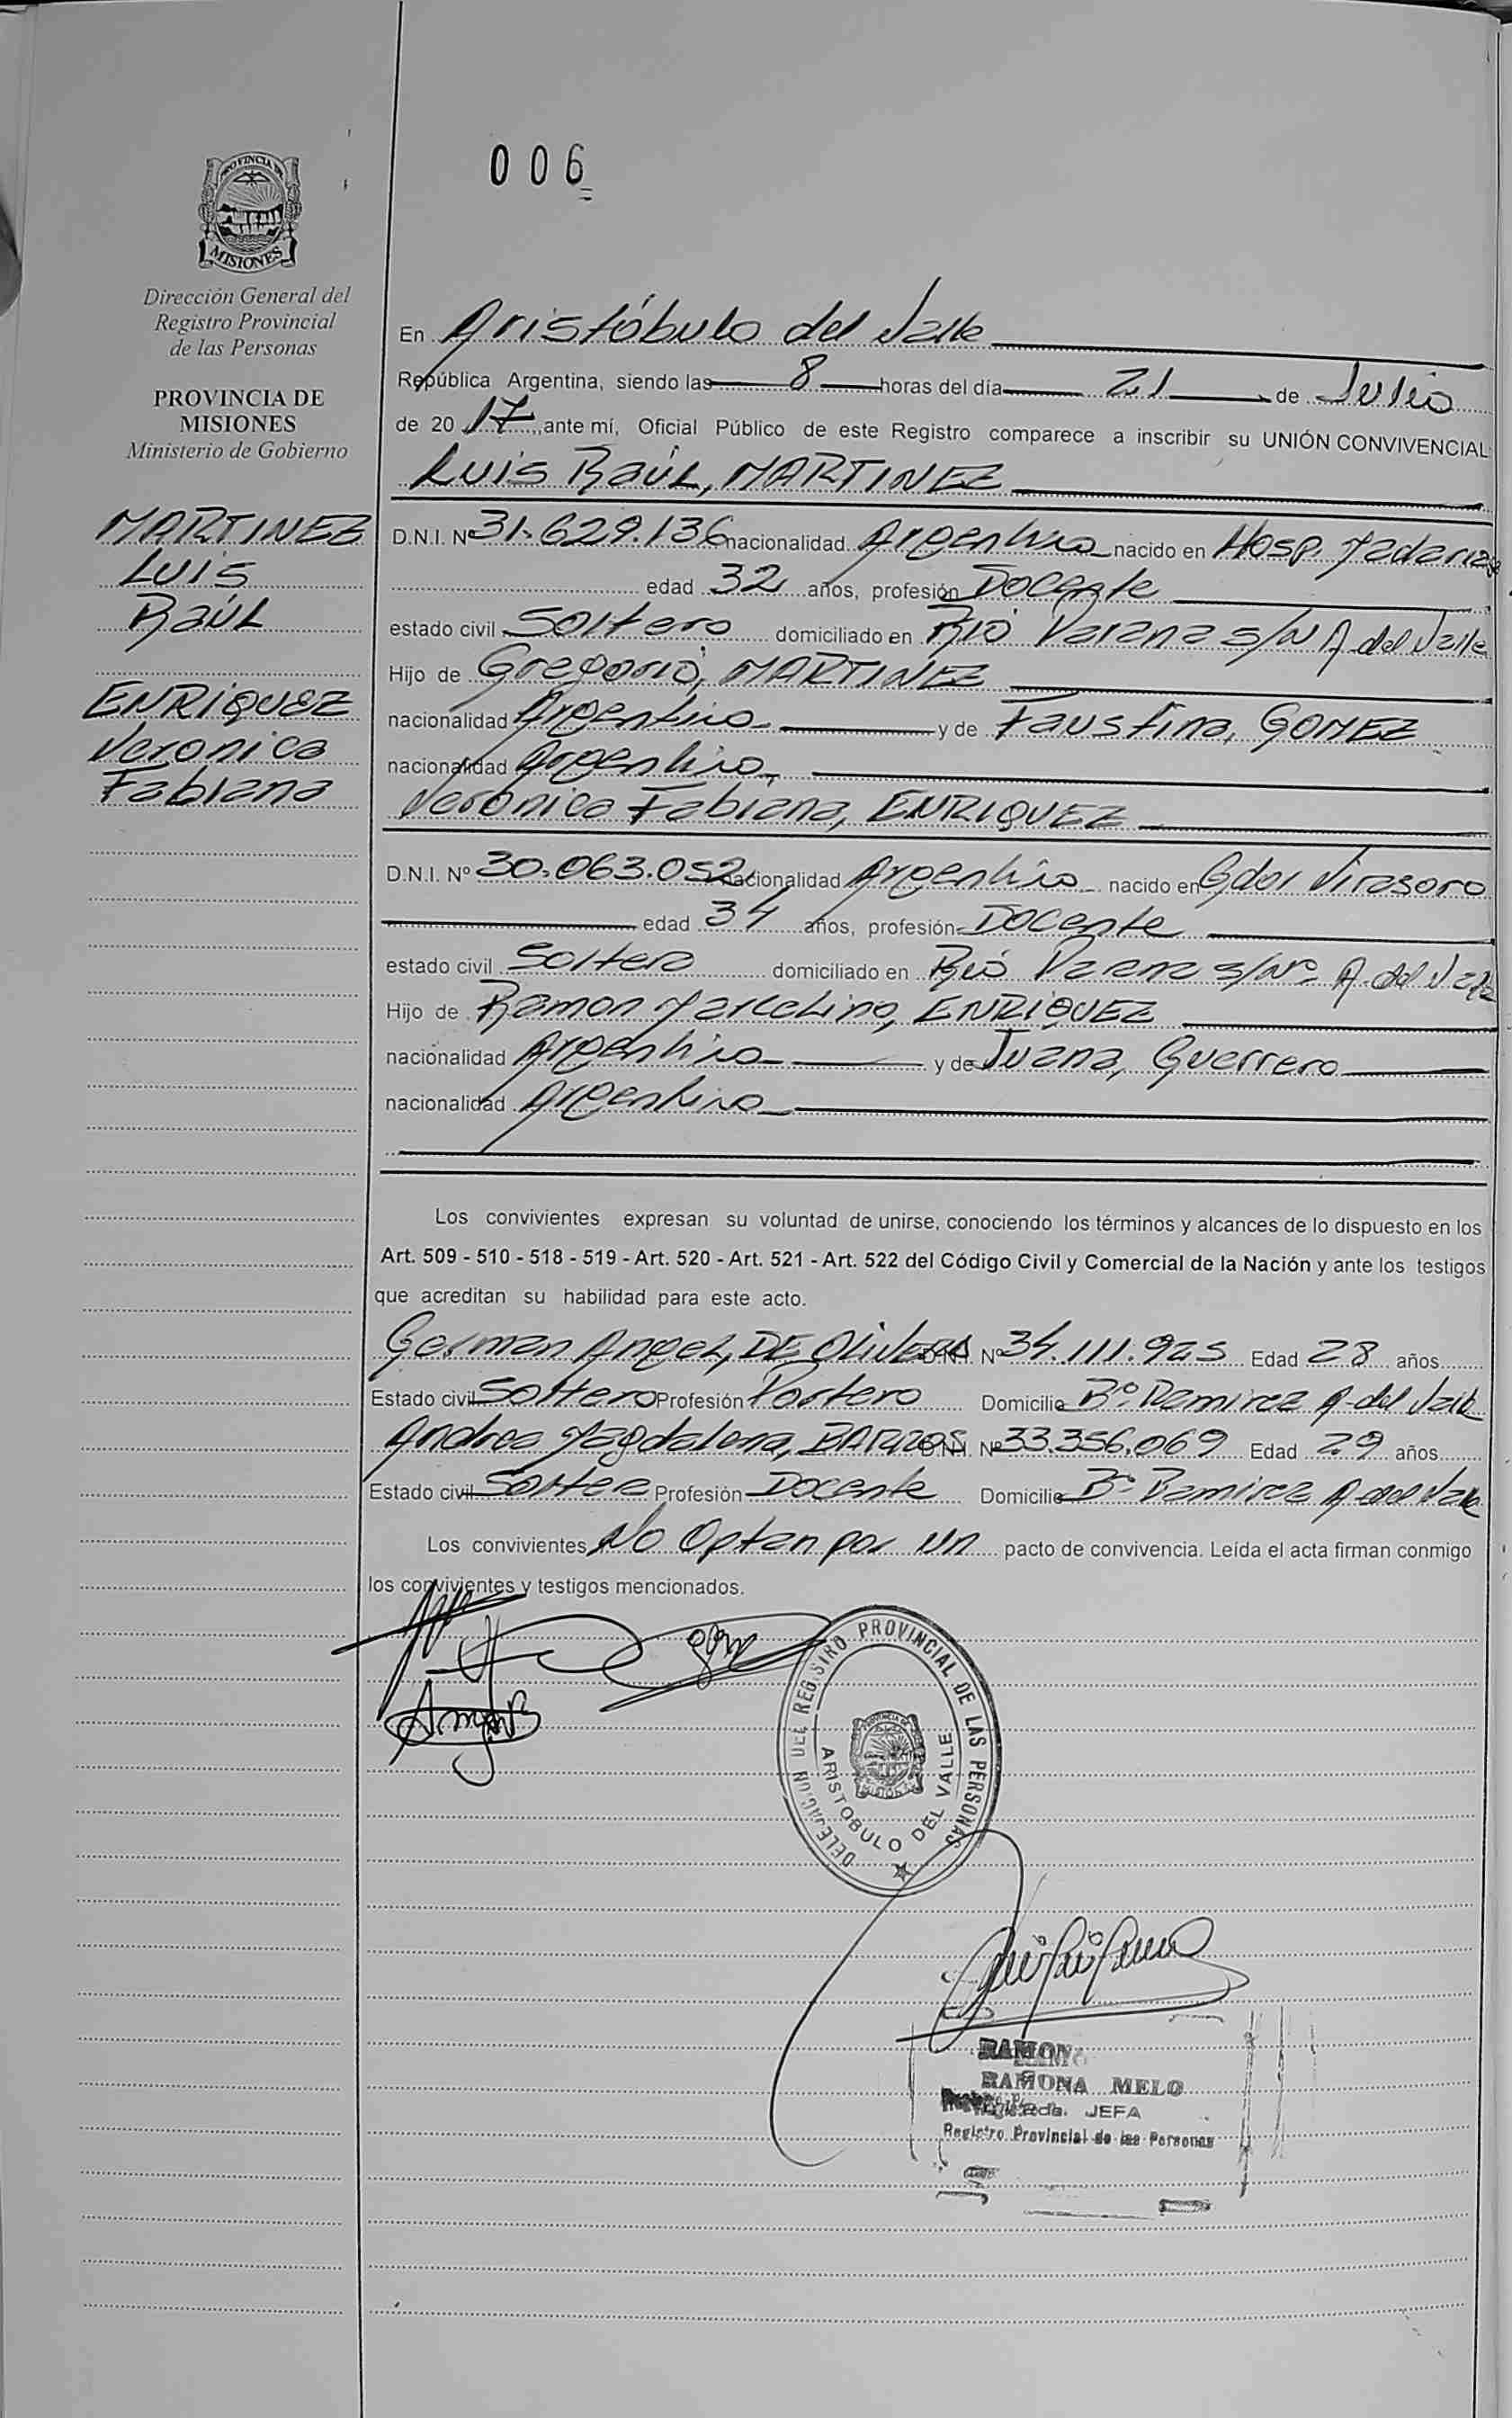 006
PROVINCIA DE
MISIONES
Dirección General del
Registro Provincial
de las Personas
PROVINCIA DE
MISIONES
Ministerio de Gobierno
MARTINEZ
LUIS
RAÚL
ENRIQUEZ
Veronica
Fabiana
En Aristóbulo del Valle
República Argentina, siendo las 8 horas del día 21 de Julio
de 20 17 ante mí, Oficial Público de este Registro comparece a inscribir su UNIÓN CONVIVENCIAL:
LUIS RAÚL, MARTINEZ
D.N.I. Nº 31.629.136 nacionalidad Argentina nacido en Hosp.
edad 32 años, profesión Docente
estado civil Soltero domiciliado en Río Parana s/N A. del Valle
Hijo de Gregorio, MARTINEZ
nacionalidad Argentino y de Faustina, GOMEZ
nacionalidad Argentina
Veronica Fabiana, ENRIQUEZ
D.N.I. Nº 30.063.052 nacionalidad Argentina nacido en Gdor Virasoro
edad 34 años, profesión Docente
estado civil Soltera domiciliado en Río Parana s/Nº A. del Valle
Hijo de Ramon Marcelino, ENRIQUEZ
nacionalidad Argentino y de Juana, Guerrero
nacionalidad Argentina
Los convivientes expresan su voluntad de unirse, conociendo los términos y alcances de lo dispuesto en los
Art. 509 - 510 - 518 - 519 - Art. 520 - Art. 521 - Art. 522 del Código Civil y Comercial de la Nación y ante los testigos
que acreditan su habilidad para este acto.
German Angel, DE OLIVERA D.N.I. Nº 34.111.925 Edad 28 años
Estado civil Soltero Profesión Portero Domicilio Bº Ramirez A. del Valle
Andrea Magdalena, BARROS D.N.I. Nº 33.356.069 Edad 29 años
Estado civil Soltera Profesión Docente Domicilio Bº Ramirez A. del Valle
Los convivientes No Optan por un pacto de convivencia. Leída el acta firman conmigo
los convivientes y testigos mencionados.
DELEGACION DEL REGISTRO PROVINCIAL DE LAS PERSONAS
ARISTOBULO DEL VALLE
RAMONA MELO
JEFA
Registro Provincial de las Personas